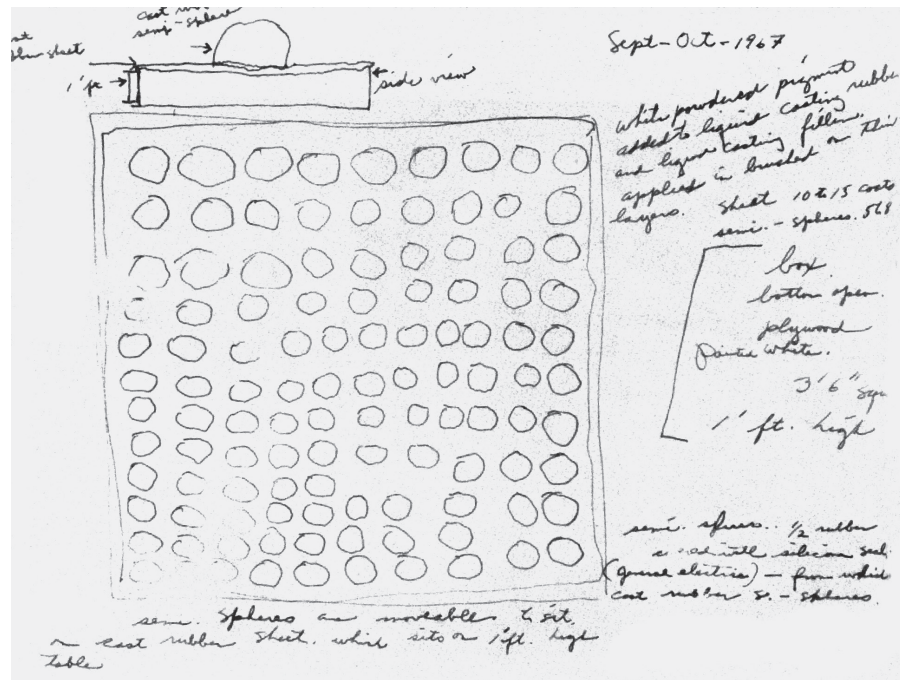 cast
semi-sphere
sheet
1'
side view
Sept-Oct-1967
white powdered pigment
added to liquid casting rubber
and liquid casting filler.
applied in brushed on thin
layers. Sheet 10 to 15 coats
semi.-spheres. 568
box
bottom open.
plywood
Painted White.
3'6" squ
1' ft. high
semi. spheres.. 1/2 rubber
silicon seal
(general electric) - from which
cast rubber s.-spheres.
semi. Spheres are moveable to sit.
on cast rubber sheet. which sits on 1'ft. high
table